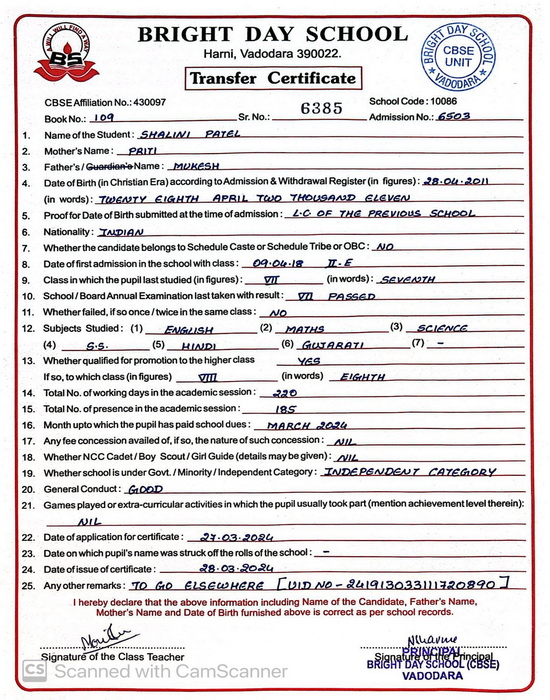 A WILL WILL FIND A WAY
BS
BRIGHT DAY SCHOOL
Harni, Vadodara 390022.
Transfer Certificate
BRIGHT DAY SCHOOL
CBSE
UNIT
★ VADODARA ★
CBSE Affiliation No.: 430097
School Code : 10086
Book No.: 109 Sr. No.: 6385 Admission No.: 6503
1. Name of the Student : SHALINI PATEL
2. Mother's Name : PRITI
3. Father's / Guardian's Name : MUKESH
4. Date of Birth (in Christian Era) according to Admission & Withdrawal Register (in figures) : 28.04.2011
(in words) : TWENTY EIGHTH APRIL TWO THOUSAND ELEVEN
5. Proof for Date of Birth submitted at the time of admission : L.C OF THE PREVIOUS SCHOOL
6. Nationality : INDIAN
7. Whether the candidate belongs to Schedule Caste or Schedule Tribe or OBC : NO
8. Date of first admission in the school with class : 09.04.18 II-E
9. Class in which the pupil last studied (in figures) : VII (in words) : SEVENTH
10. School / Board Annual Examination last taken with result : VII PASSED
11. Whether failed, if so once / twice in the same class : NO
12. Subjects Studied : (1) ENGLISH (2) MATHS (3) SCIENCE
(4) S.S. (5) HINDI (6) GUJARATI (7) -
13. Whether qualified for promotion to the higher class YES
If so, to which class (in figures) VIII (in words) EIGHTH
14. Total No. of working days in the academic session : 220
15. Total No. of presence in the academic session : 185
16. Month upto which the pupil has paid school dues : MARCH 2024
17. Any fee concession availed of, if so, the nature of such concession : NIL
18. Whether NCC Cadet / Boy Scout / Girl Guide (details may be given) : NIL
19. Whether school is under Govt. / Minority / Independent Category : INDEPENDENT CATEGORY
20. General Conduct : GOOD
21. Games played or extra-curricular activities in which the pupil usually took part (mention achievement level therein):
NIL
22. Date of application for certificate : 27.03.2024
23. Date on which pupil's name was struck off the rolls of the school : -
24. Date of issue of certificate : 28.03.2024
25. Any other remarks : TO GO ELSEWHERE [UID NO - 241913033111720890]
I hereby declare that the above information including Name of the Candidate, Father's Name,
Mother's Name and Date of Birth furnished above is correct as per school records.
Signature of the Class Teacher
Signature of the Principal
PRINCIPAL
BRIGHT DAY SCHOOL (CBSE)
VADODARA
CS Scanned with CamScanner